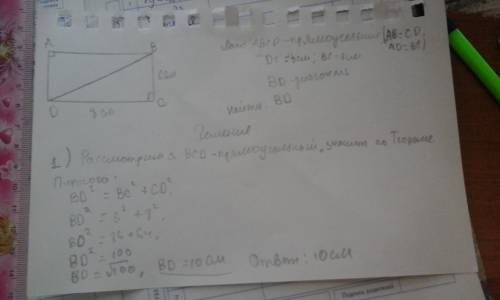 A B
Дано: ABCD-прямоугольник (AB=CD,
AD=BC)
DC=8см; BC=6см
BD-диагональ
6см
D C
8см
Найти: BD
Решение
1) Рассмотрим Δ BCD-прямоугольный, значит по Теореме
Пифагора:
BD² = BC² + CD²;
BD² = 6² + 8²;
BD² = 36 + 64;
BD² = 100
BD = √100; BD = 10 см Ответ: 10 см